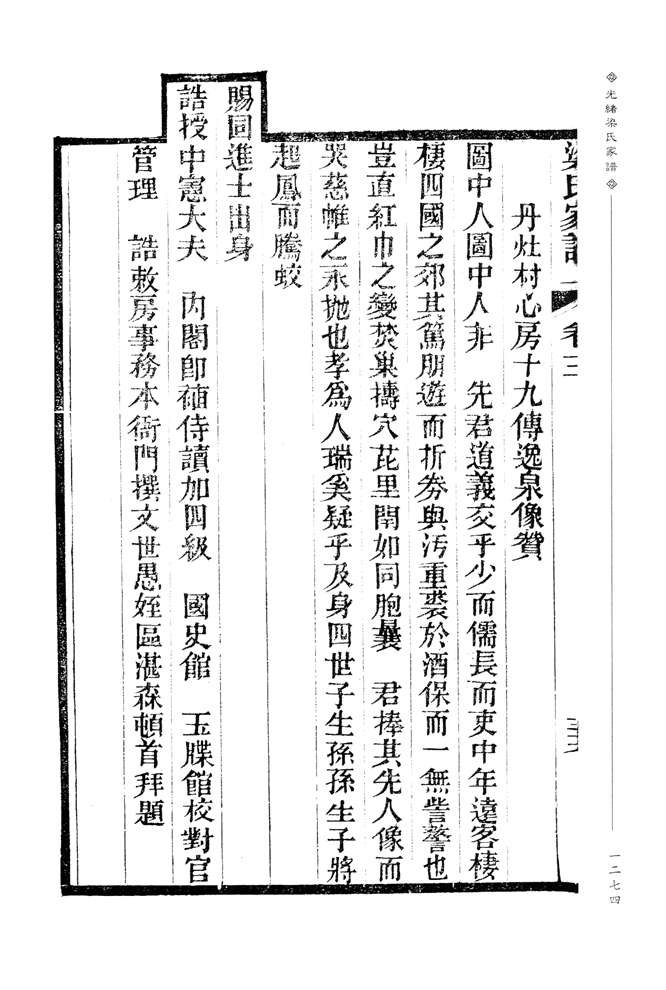 光緒梁氏家譜
一二七四
梁氏家譜 卷三
丹灶村心房十九傳逸泉像贊
圖中人圖中人非 先君道義交乎少而儒長而吏中年遠客棲
棲四國之郊其篤朋遊而折券與沽重裘於酒保而一無訾謷也
豈直紅巾之變焚巢擣穴芘里閈如同胞曩 君捧其先人像而
哭慈帷之永拋也孝為人瑞奚疑乎及身四世子生孫孫生子將
起鳳而騰蛟
賜同進士出身
誥授中憲大夫 內閣即補侍讀加四級 國史館 玉牒館校對官
管理 誥敕房事務本衙門撰文世愚姪區湛森頓首拜題